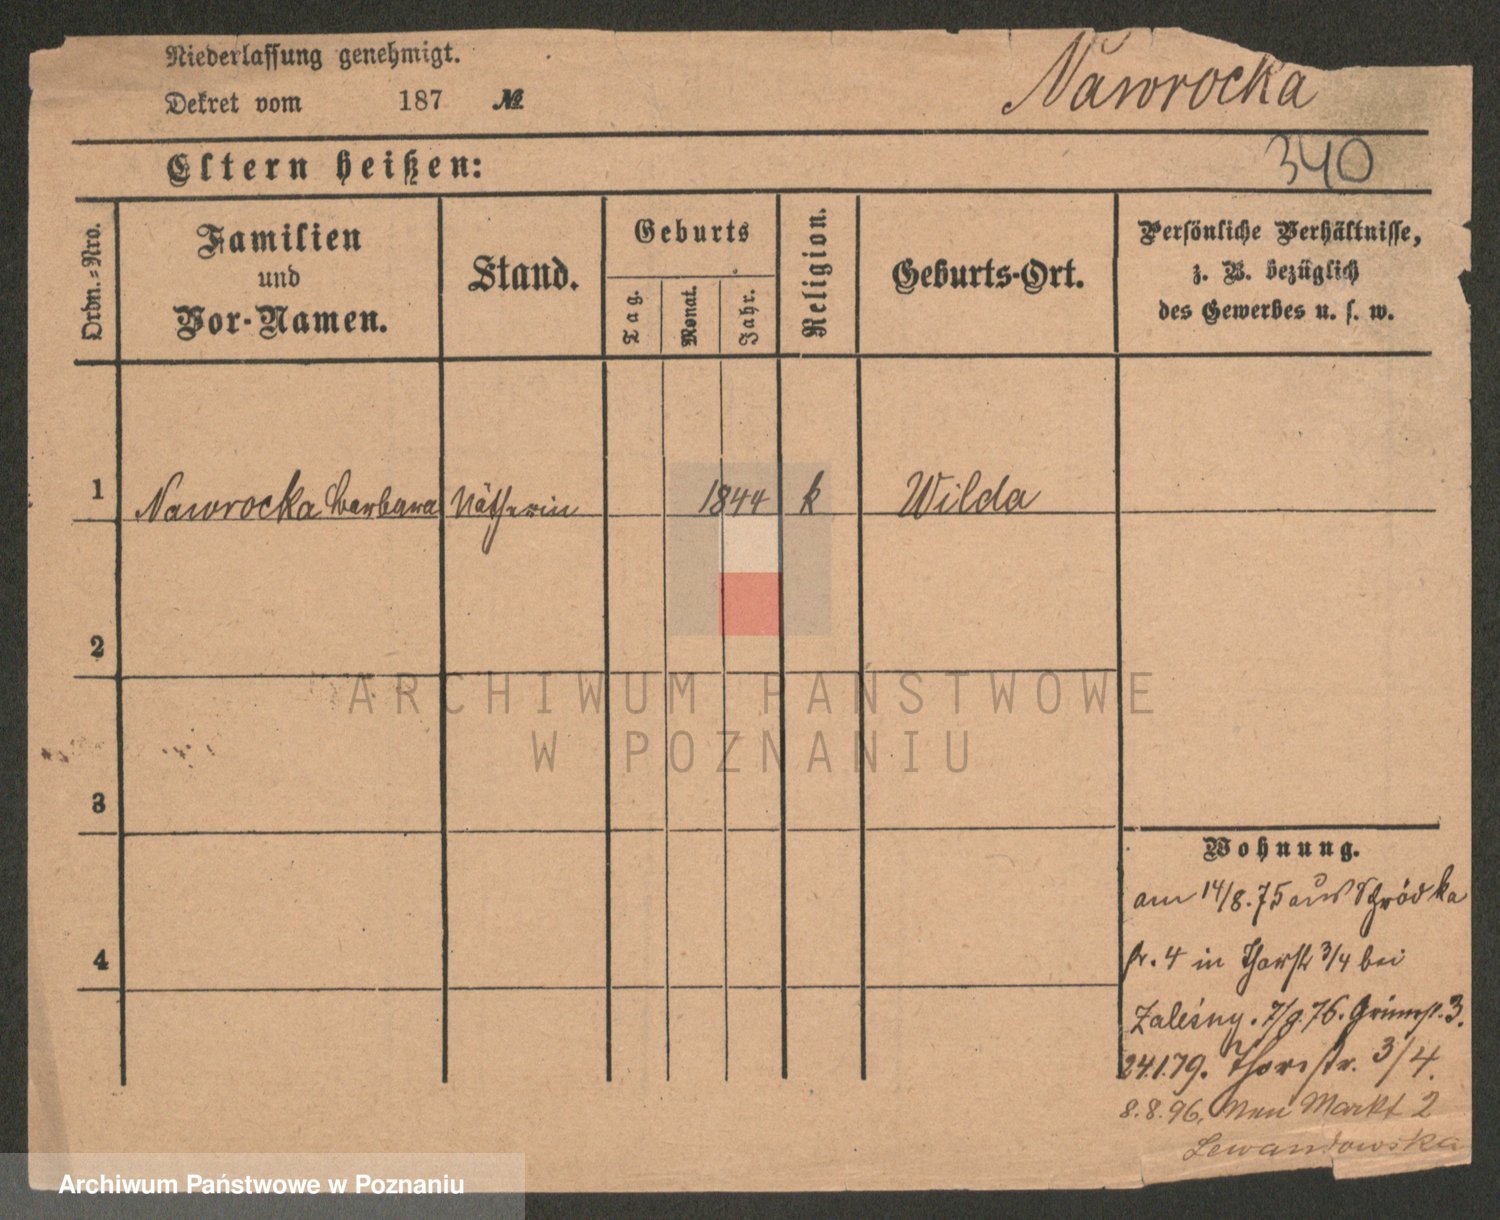 Niederlassung genehmigt.
Dekret vom 187 №
Nawrocka
340
Eltern heißen:
Ordn.-Nro.
Familien
und
Vor-Namen.
Stand.
Geburts
Tag.
Monat.
Jahr.
Religion.
Geburts-Ort.
Persönliche Verhältnisse,
z. B. bezüglich
des Gewerbes u. s. w.
1 Nawrocka Barbara Nätherin 1844 k Wilda
2
ARCHIWUM PAŃSTWOWE
W POZNANIU
3
Wohnung.
am 14/8.75 aus Schrödka
4
Nr. 4 in Thorstr 3/4 bei
Zaleśny. 7/9.76. Grünestr. 3.
24.1.79. Thorstr. 3/4.
8.8.96. Neu Markt 2
Lewandowska
Archiwum Państwowe w Poznaniu